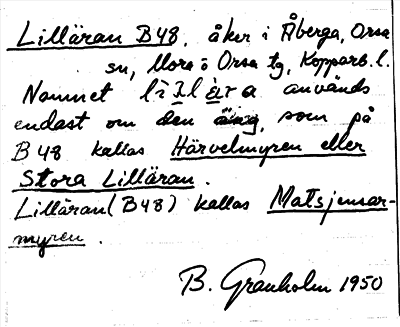 Lilläran B48. åker i Åberga, Orsa
sn, Mora o Orsa tg, Kopparb. l.
Namnet lìlèra används
endast om den äng, som på
B48 kallas Härvelmyren eller
Stora Lilläran.
Lilläran (B48) kallas Matsjensar-
myren.
B. Granholm 1950